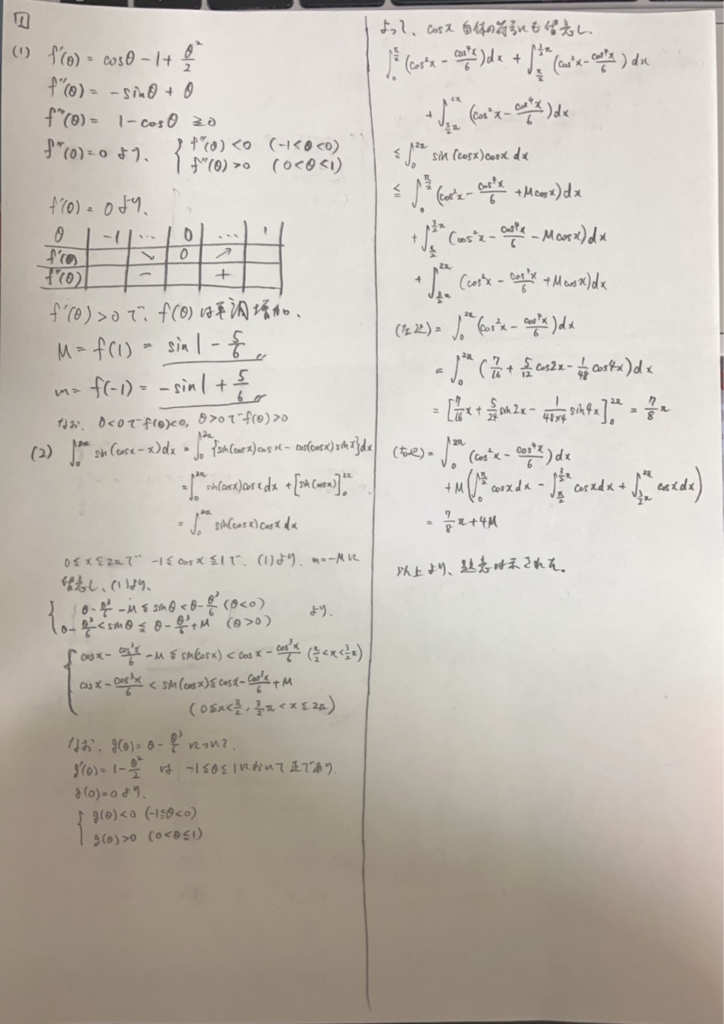 1
(1) f'(θ) = cosθ - 1 + θ²/2
f''(θ) = -sinθ + θ
f'''(θ) = 1 - cosθ ≧ 0
f''(0) = 0 より、 { f''(θ) < 0 (-1<θ<0)
f''(θ) > 0 (0<θ<1)
f'(0) = 0 より、
θ | -1 | … | 0 | … | 1
f'(θ) | | ↘ | 0 | ↗ |
f''(θ) | | - | | + |
f'(θ) > 0 で、f(θ) は単調増加、
M = f(1) = sin1 - 5/6
m = f(-1) = -sin1 + 5/6
なお、θ<0でf(θ)<0, θ>0でf(θ)>0
(2) ∫₀^{2π} sin(cosx - x)dx = ∫₀^{2π} {sin(cosx)cosx - cos(cosx)sinx}dx
= ∫₀^{2π} sin(cosx)cosx dx + [sin(cosx)]₀^{2π}
= ∫₀^{2π} sin(cosx)cosx dx
0≦x≦2πで -1≦cosx≦1で、(1)より、m=-Mに
留意し、(1)より、
{ θ - θ³/6 - M ≦ sinθ < θ - θ³/6 (θ<0)
θ - θ³/6 < sinθ ≦ θ - θ³/6 + M (θ>0) より、
{ cosx - cos³x/6 - M ≦ sin(cosx) < cosx - cos³x/6 (π/2<x<3/2π)
cosx - cos³x/6 < sin(cosx) ≦ cosx - cos³x/6 + M
(0≦x<π/2, 3/2π<x≦2π)
なお、g(θ) = θ - θ³/6 について、
g'(θ) = 1 - θ²/2 は -1≦θ≦1において正であり、
g(0)=0より、
{ g(θ)<0 (-1≦θ<0)
g(θ)>0 (0<θ≦1)
よって、cosx 自体の符号にも留意し、
∫₀^{π/2} (cos²x - cos⁴x/6)dx + ∫_{π/2}^{3/2π} (cos²x - cos⁴x/6)dx
+ ∫_{3/2π}^{2π} (cos²x - cos⁴x/6)dx
≦ ∫₀^{2π} sin(cosx)cosx dx
≦ ∫₀^{π/2} (cos²x - cos⁴x/6 + Mcosx)dx
+ ∫_{π/2}^{3/2π} (cos²x - cos⁴x/6 - Mcosx)dx
+ ∫_{3/2π}^{2π} (cos²x - cos⁴x/6 + Mcosx)dx
(左辺) = ∫₀^{2π} (cos²x - cos⁴x/6)dx
= ∫₀^{2π} (7/16 + 5/12 cos2x - 1/48 cos4x)dx
= [7/16 x + 5/24 sin2x - 1/(48×4) sin4x]₀^{2π} = 7/8 π
(右辺) = ∫₀^{2π} (cos²x - cos⁴x/6)dx
+ M(∫₀^{π/2} cosxdx - ∫_{π/2}^{3/2π} cosxdx + ∫_{3/2π}^{2π} cosxdx)
= 7/8 π + 4M
以上より、題意は示された。